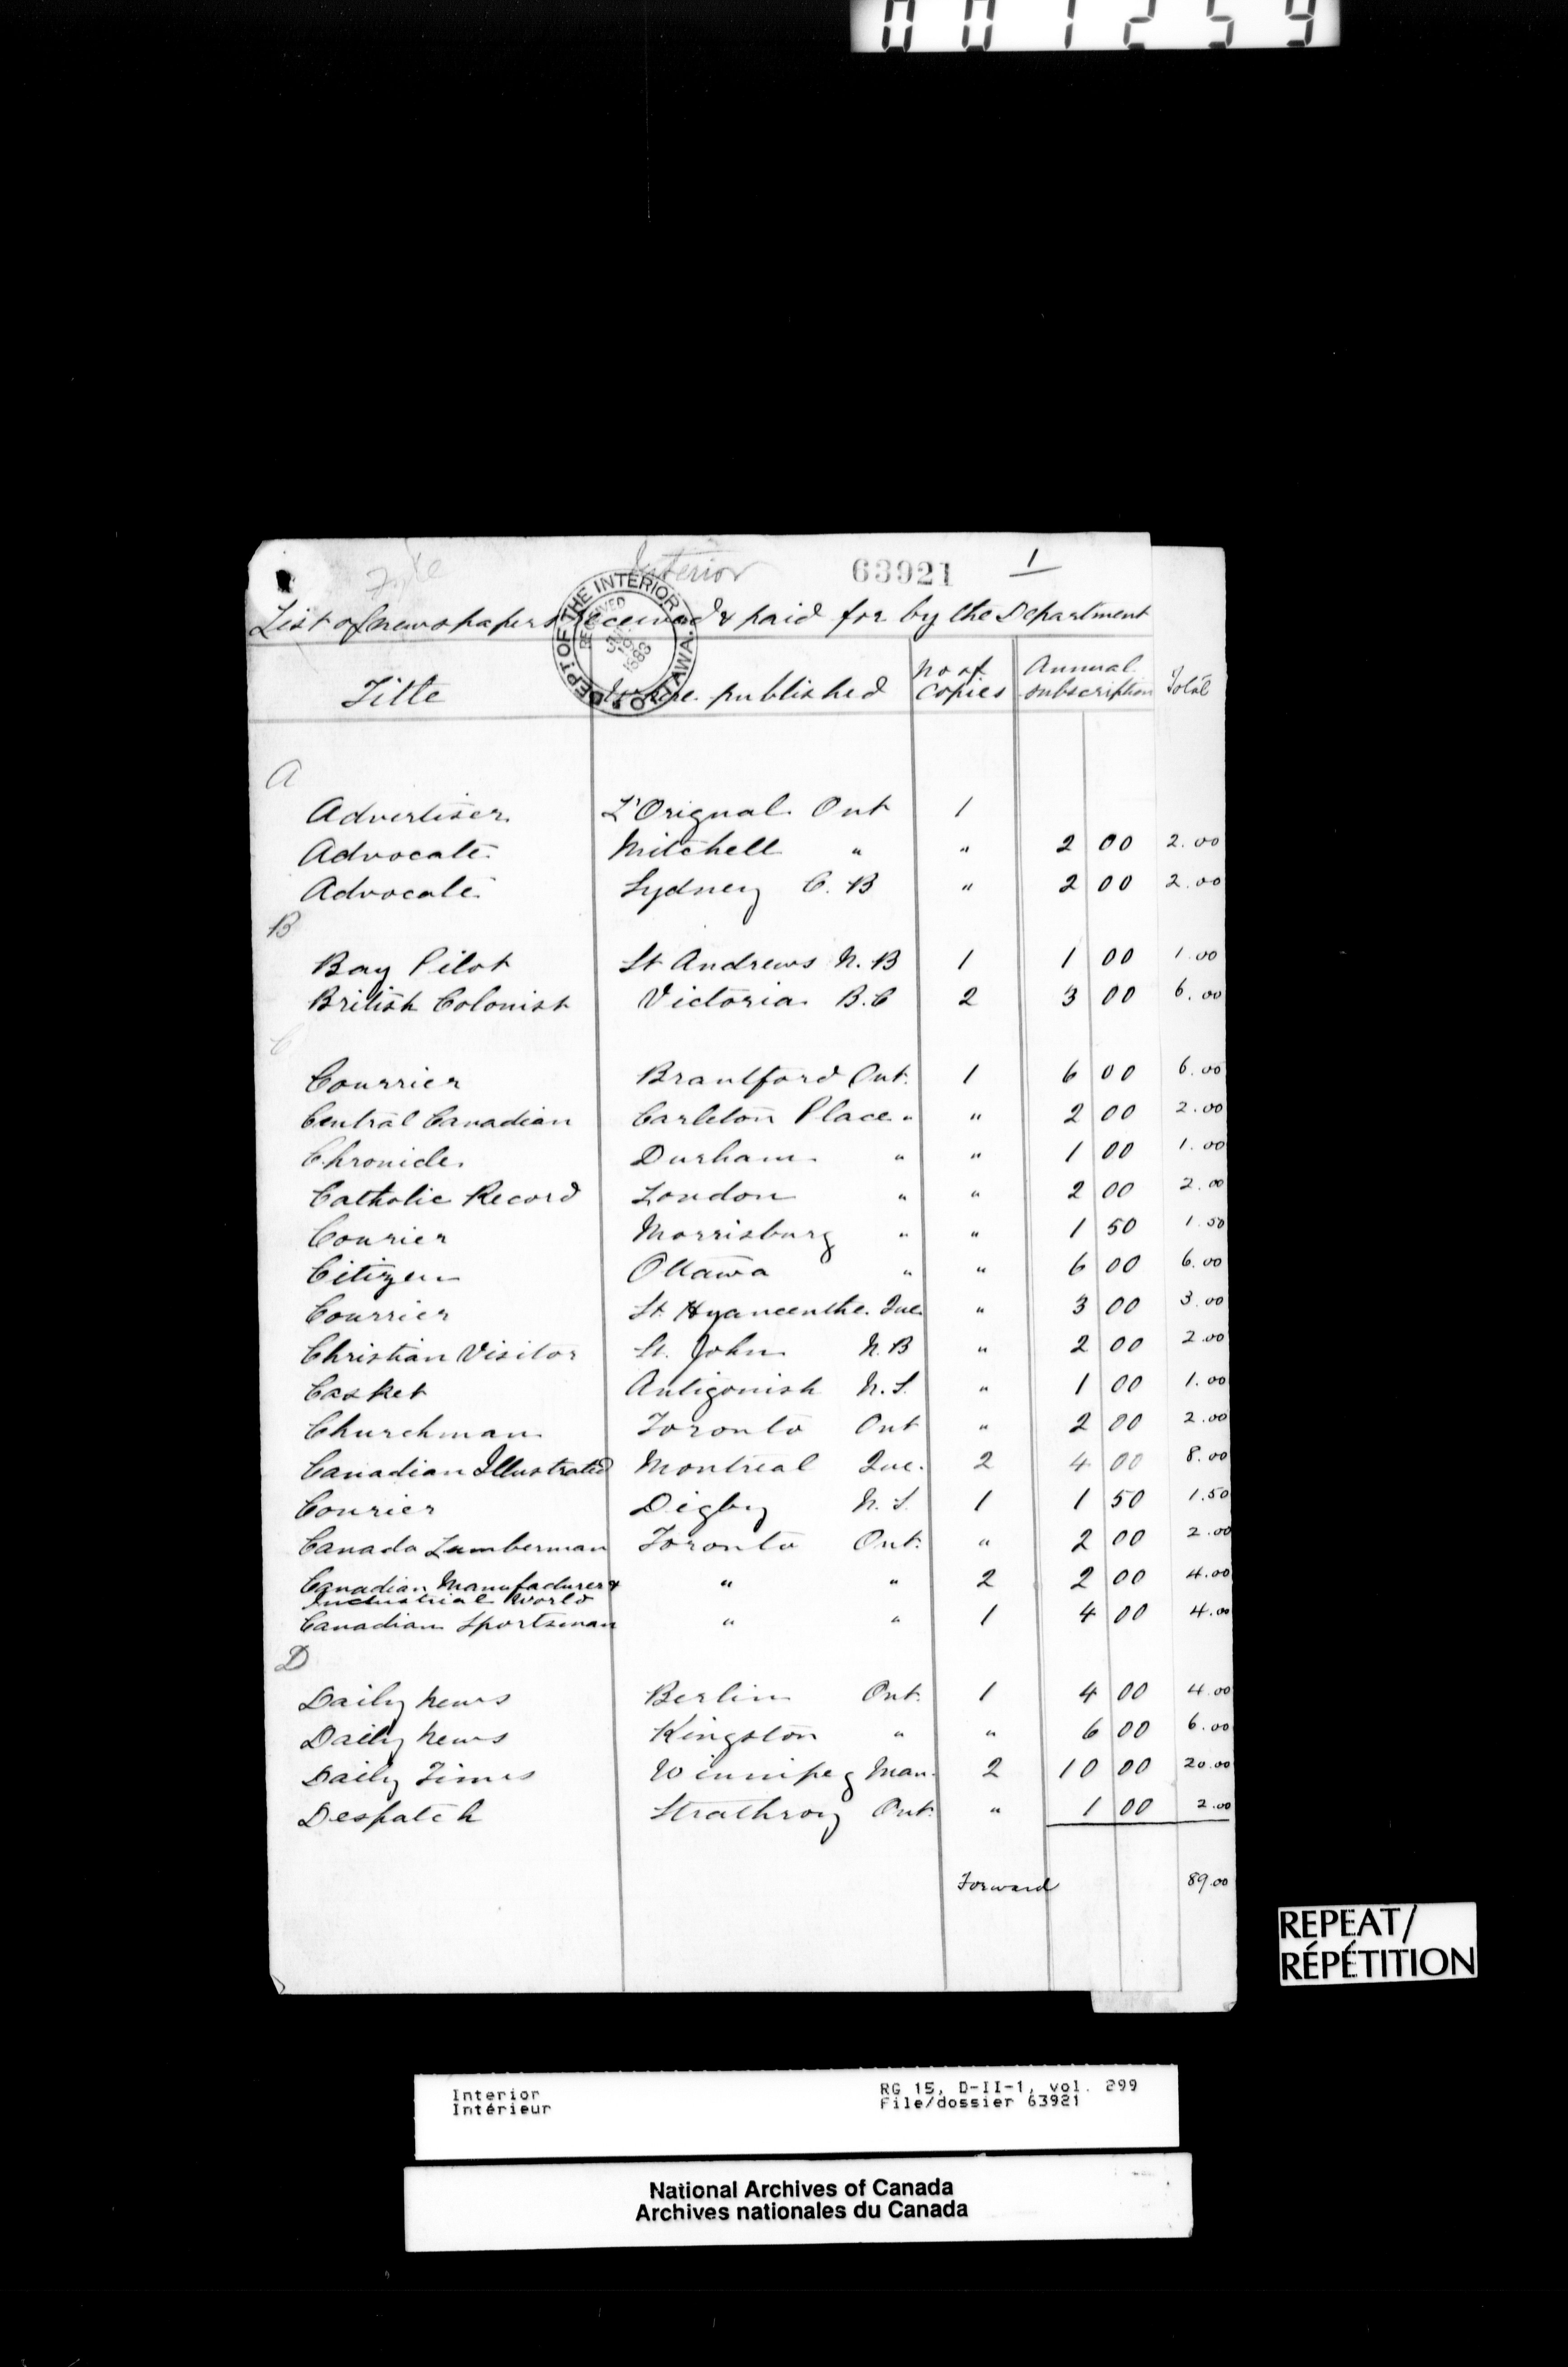 001259
Interior
63921 1
List of newspapers received & paid for by the Department
DEPT OF THE INTERIOR OTTAWA.
RECEIVED
1883
Title published No of copies Annual subscription Total
A
Advertiser L'Orignal Ont 1
Advocate Mitchell " " 2 00 2.00
Advocate Sydney C. B " 2 00 2.00
B
Bay Pilot St Andrews N. B 1 1 00 1.00
British Colonist Victoria B. C 2 3 00 6.00
C
Courrier Brantford Ont. 1 6 00 6.00
Central Canadian Carleton Place " " 2 00 2.00
Chronicle Durham " " 1 00 1.00
Catholic Record London " " 2 00 2.00
Courier Morrisburg " " 1 50 1.50
Citizen Ottawa " " 6 00 6.00
Courrier St. Hyancenthe Que " 3 00 3.00
Christian Visitor St. John N. B " 2 00 2.00
Casket Antigonish N. S. " 1 00 1.00
Churchman Toronto Ont " 2 00 2.00
Canadian Illustrated Montreal Que. 2 4 00 8.00
Courier Digby N. S. 1 1 50 1.50
Canada Lumberman Toronto Ont. " 2 00 2.00
Canadian Manufacturer & " " 2 2 00 4.00
Industrial World
Canadian Sportsman " " 1 4 00 4.00
D
Daily News Berlin Ont. 1 4 00 4.00
Daily News Kingston " " 6 00 6.00
Daily Times Winnipeg Man. 2 10 00 20.00
Despatch Strathroy Ont. " 1 00 2.00
Forward 89.00
REPEAT/
RÉPÉTITION
Interior RG 15, D-II-1, vol. 299
Intérieur File/dossier 63921
National Archives of Canada
Archives nationales du Canada